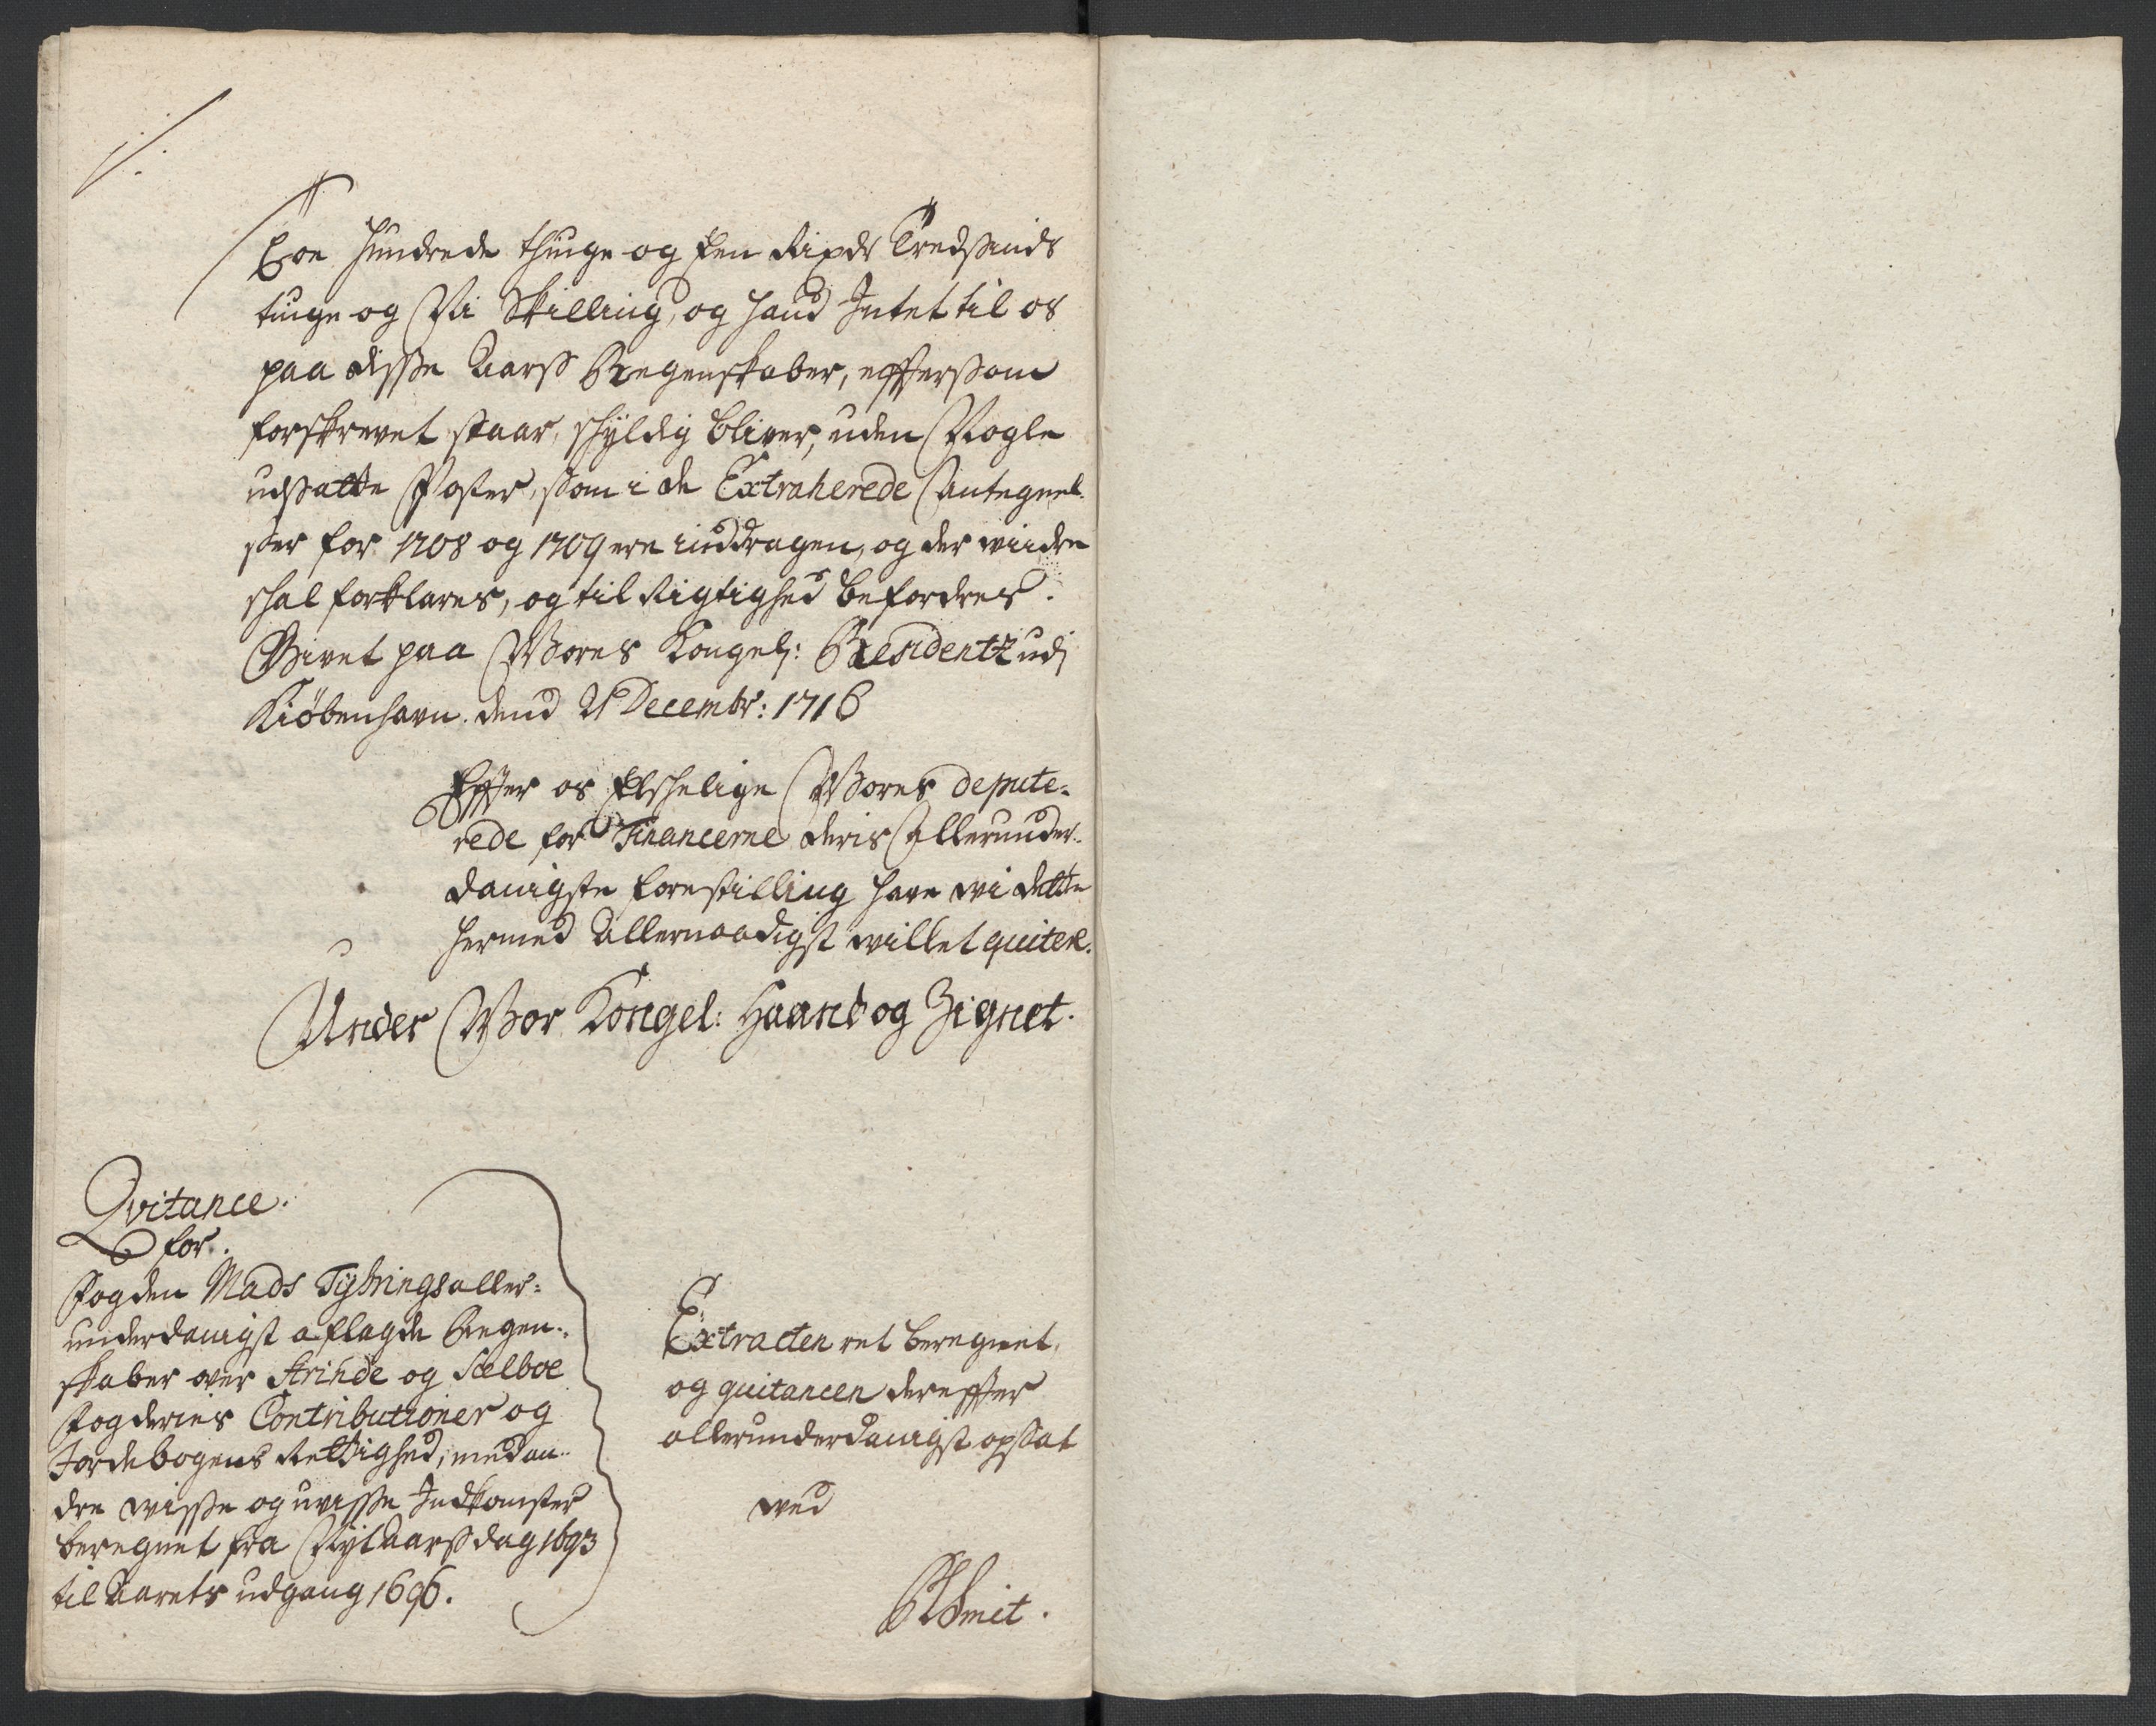 Toe Hundrede thiuge og Fem Rixdr Tredsinds
tiuge og Ni Skilling, og hand Intet til os
paa disse Aarss Regenskaber, effterssom
forskrevet staar, skyldig bliver, uden Nogle
udssatte Poster, som i de Extraherede Antegnel-
sser for 1708 og 1709 ere inddragen, og der wiidre
skal forklares, og til Rigtighed befordres.
Givet paa Wores Kongel: Residentz udj
Kiøbenhavn. dend 21 Decembr: 1716
Effter os Elskelige Wores depute-
rede for Financerne deris Allerunder-
danigste forestilling have wi dette
hermed Allernaadigst willet quitere.
Under Wor Kongel: Haand og Zignet.
Qvitance.
for.
Fogden Mads Tyhrings aller-
underdanigst aflagde Regen-
skaber over Strinde og Sælboe
Fogderies Contributioner og
Jordebogens Rettighed, med an-
dre wisse og uwisse Indkomster
beregnet fra Nyt Aarss dag 1693
til Aarets udgang 1696.
Extracten ret beregnet,
og quitancen dereffter
allerunderdanigst opssat
wed
Smit.